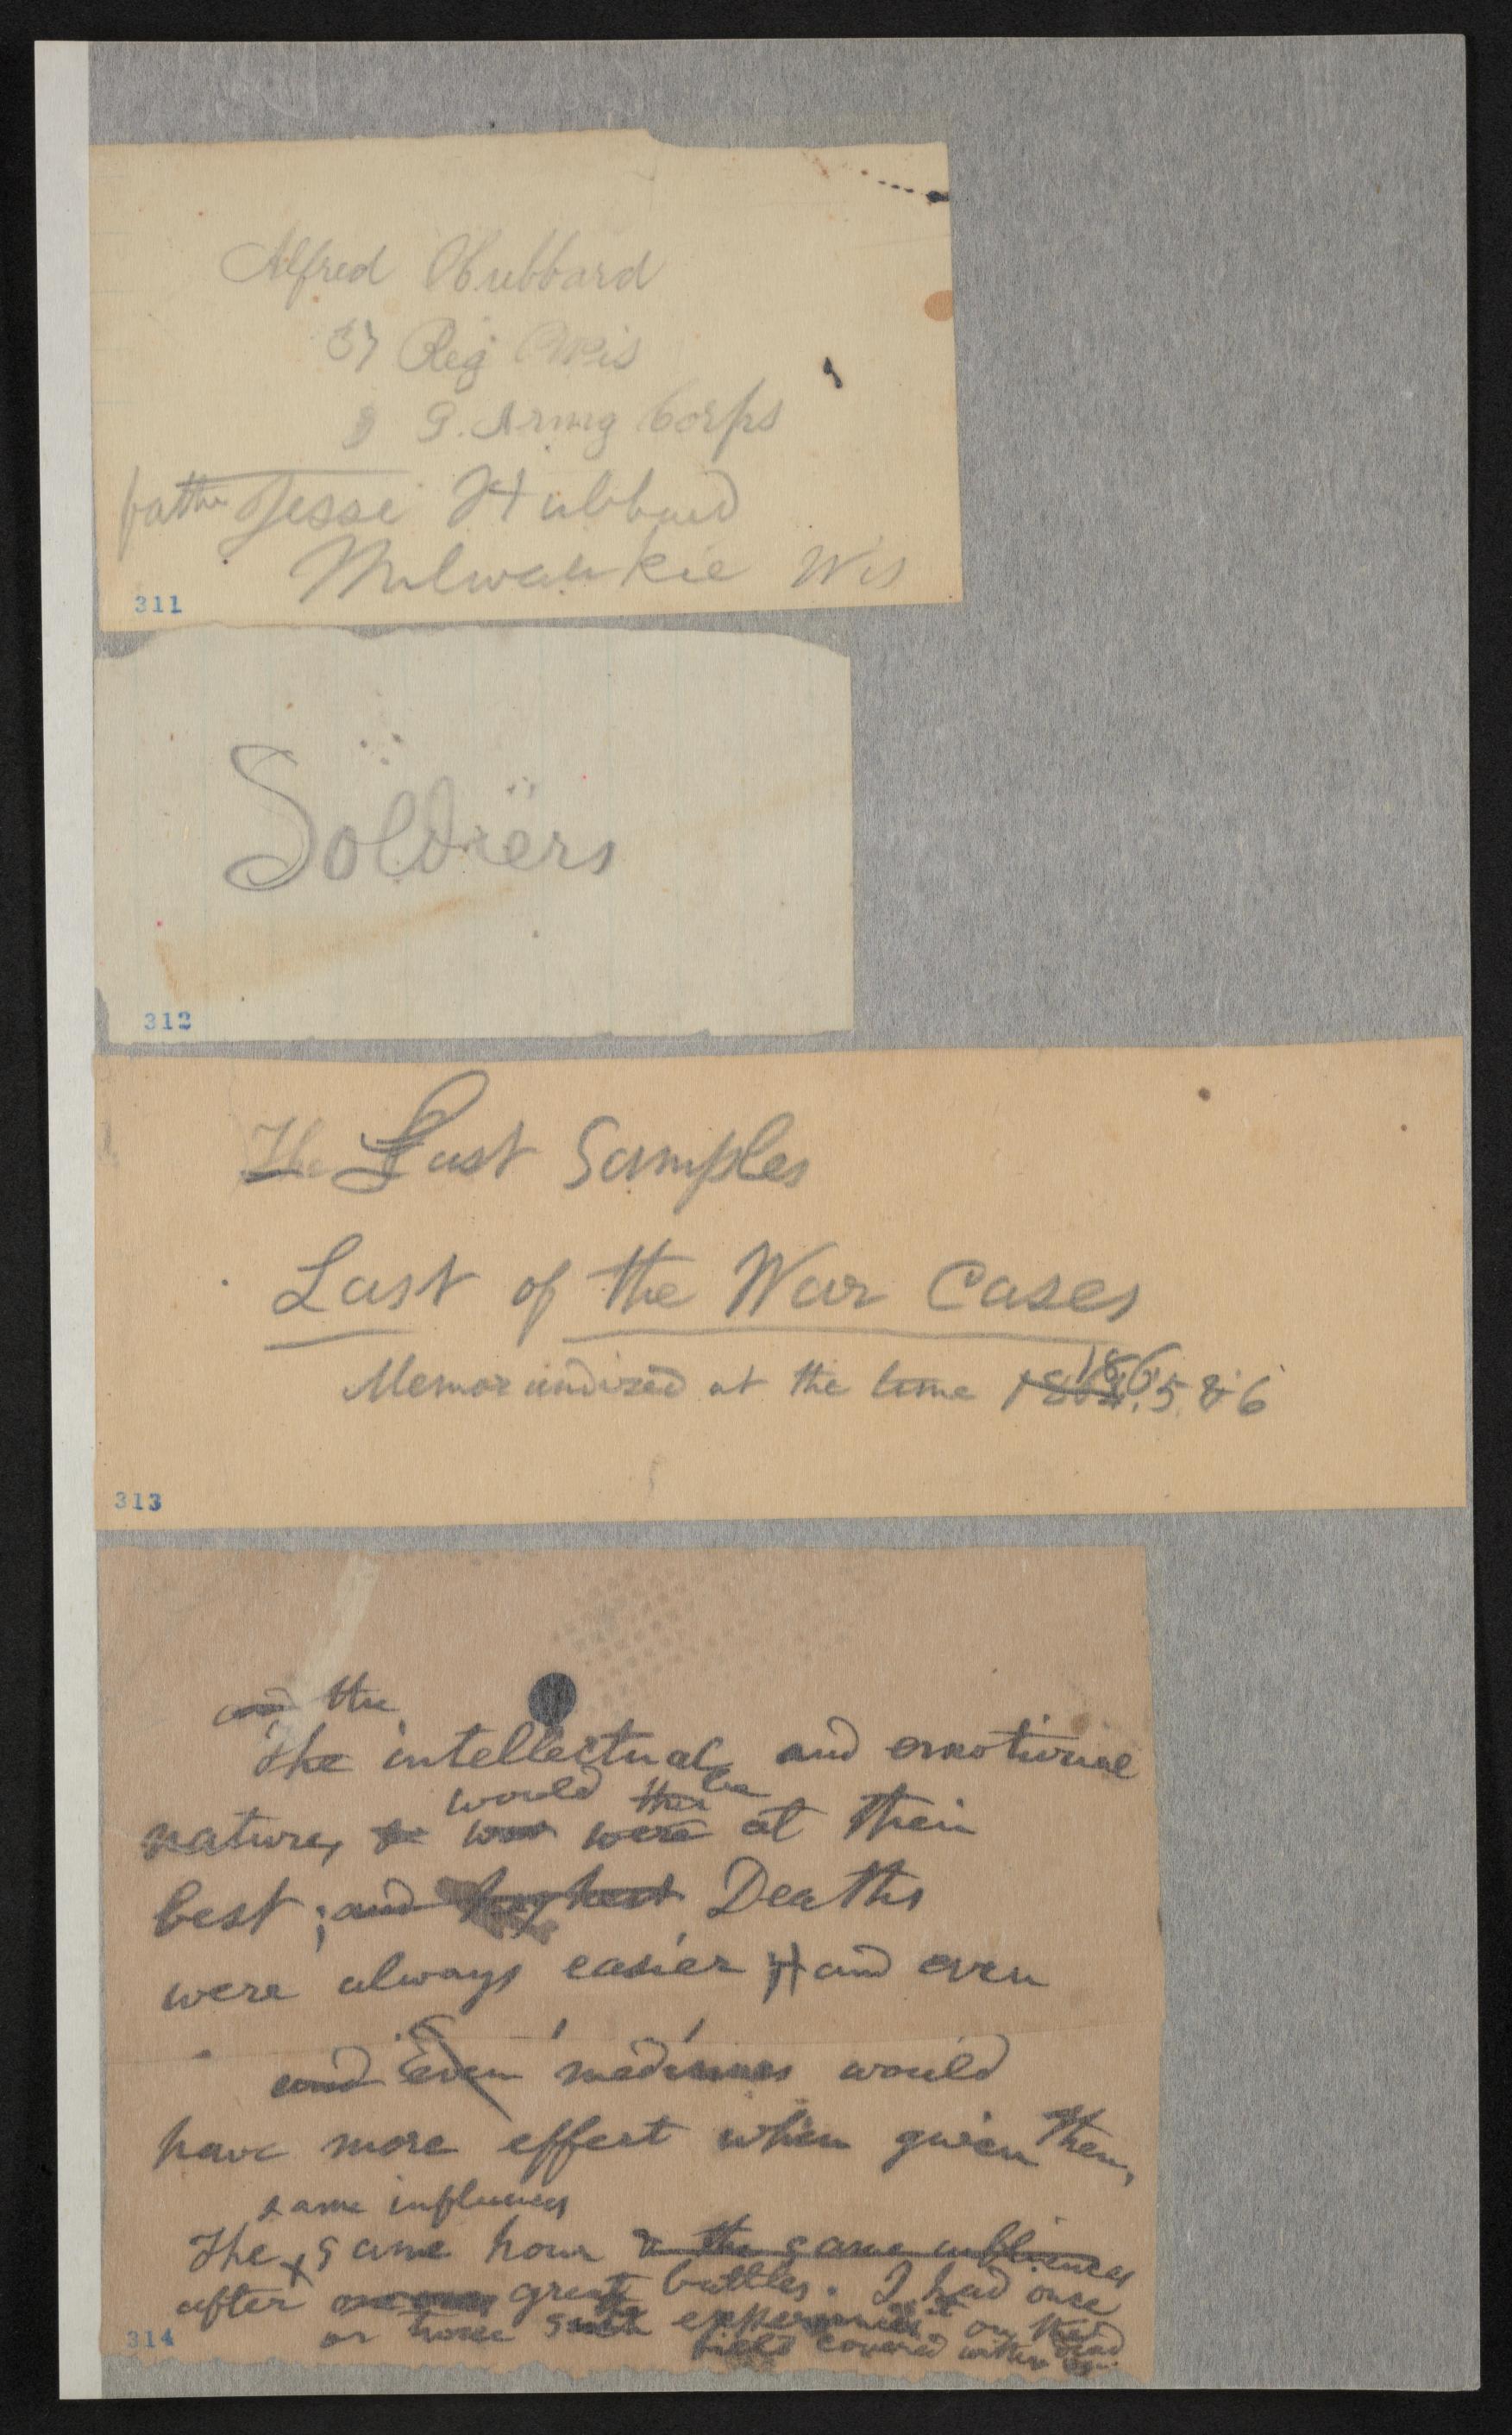 Alfred Hubbard
37 Reg Wis
9. Army Corps
father Jesse Hubbard
Milwaukie Wis
311
Soldiers
312
The Last Samples
Last of the War Cases
Memorandized at the time 1864, 186 5 & 6
313
and the
The intellectual and emotional
would the be
nature, was were at their
best; and highest Deaths
were always easier and even
and Even medicines would
have more effect when given then,
same influences
The same hour & the same influences
after great battles. I had once
or twice such experiences on the
field covered with dead
314